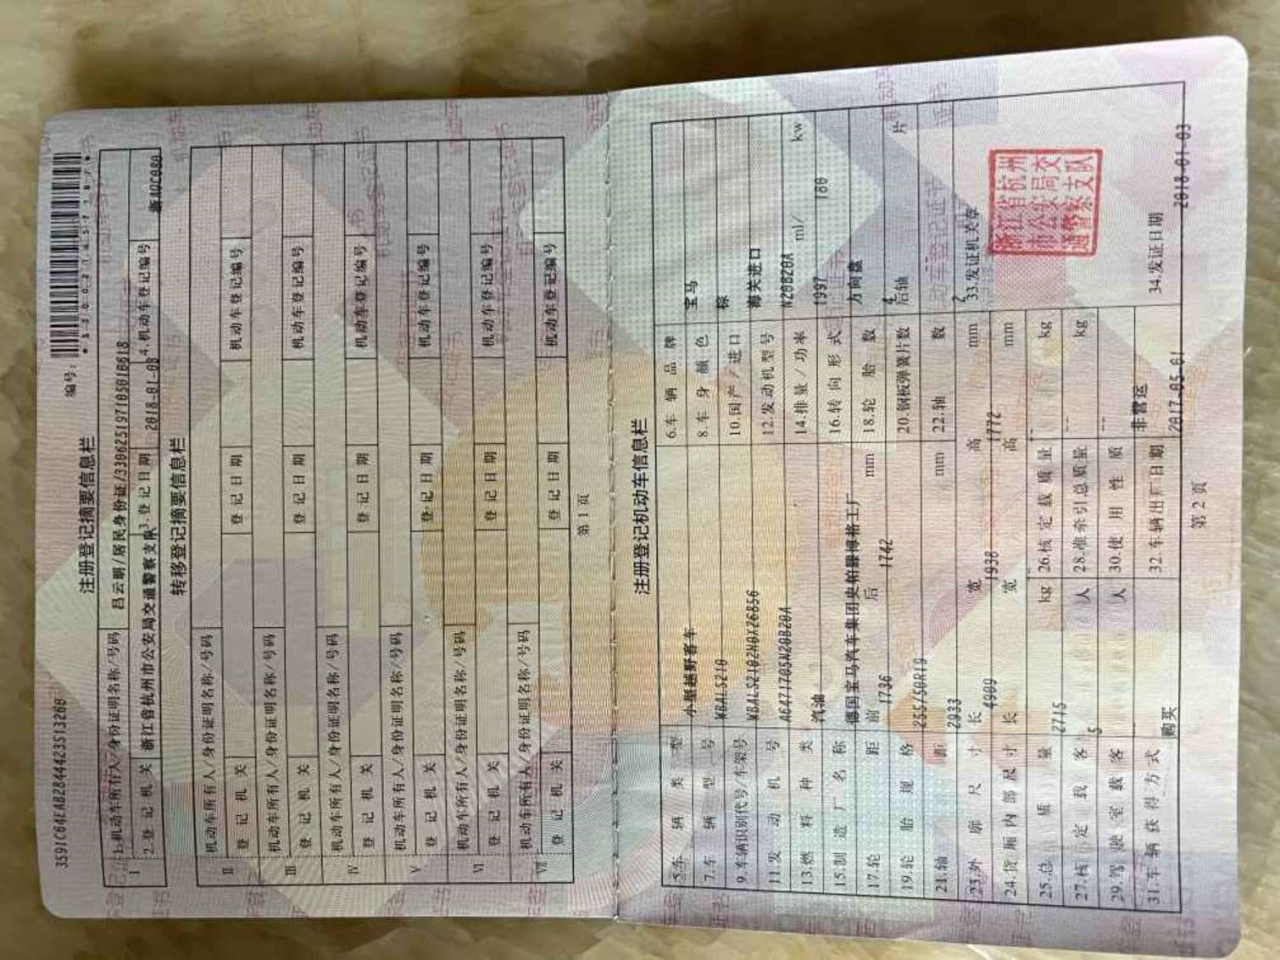 编号：
注册登记摘要信息栏
I
1.机动车所有人/身份证明名称/号码 吕云明/居民身份证/
2.登记机关 浙江省杭州市公安局交通警察支队 3.登记日期 2018-01-03 4.机动车登记编号
转移登记摘要信息栏
II 机动车所有人/身份证明名称/号码
登记机关 登记日期 机动车登记编号
III 机动车所有人/身份证明名称/号码
登记机关 登记日期 机动车登记编号
IV 机动车所有人/身份证明名称/号码
登记机关 登记日期 机动车登记编号
V 机动车所有人/身份证明名称/号码
登记机关 登记日期 机动车登记编号
VI 机动车所有人/身份证明名称/号码
登记机关 登记日期 机动车登记编号
VII 机动车所有人/身份证明名称/号码
登记机关 登记日期 机动车登记编号
第 1 页
注册登记机动车信息栏
5.车辆类型 小型越野客车 6.车辆品牌 宝马
7.车辆型号 WBALS210 8.车身颜色 棕
9.车辆识别代号/车架号 10.国产/进口 海关进口
11.发动机号 12.发动机型号 N20B20A
13.燃料种类 汽油 14.排量/功率 1997 ml/ 180 kw
15.制造厂名称 德国宝马汽车集团史帕登博格工厂 16.转向形式 方向盘
17.轮距 前 1736 后 1742 mm 18.轮胎数 4
19.轮胎规格 255/50R19 20.钢板弹簧片数 后轴 -- 片
21.轴距 2933 mm 22.轴数 2
23.外廓尺寸 长 4909 宽 1938 高 1772 mm 33.发证机关章
浙江省杭州市公安局交通警察支队
24.货厢内部尺寸 长 宽 高 mm
25.总质量 2715 kg 26.核定载质量 -- kg
27.核定载客 5 人 28.准牵引总质量 -- kg
29.驾驶室载客 人 30.使用性质 非营运 34.发证日期 2018-01-03
31.车辆获得方式 购买 32.车辆出厂日期 2017-05-01
第 2 页